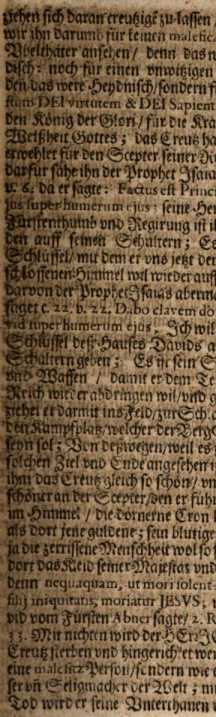 ziehen sich daran creutzigẽ zu lassen
wir ihn darumb für keinen malefic.
Vbelthäter ansehen / denn das n
disch: noch für einen vnwitzigen
den das were Heydnisch / sondern f
stum DEI virtutem & DEI Sapient
den König der Glori / für die Kra
Weißheit Gottes; das Creutz ha
erwehlet für den Scepter seiner
darfür sahe ihn der Prophet Isaia
v. 6. da er sagte: Factus est Princi
jus super humerum ejus: seine Her
Fürstenthumb vnd Regirung ist ih
den auff seinen Schultern; Es
Schlüssel / mit dem er vns jetzt den
schlossenen Himmel wil wieder auff
darvon der Prophet Isaias aberm
saget c. 22. v. 22. Dabo clavem do
vid super humerum ejus: Ich wil
Schlüssel deß Hauses Davids a
Schultern geben; Es ist sein S
vnd Waffen / damit er dem T
Reich wieder abdringen wil / vnd
ziehet er darmit ins Feld / zur Sch
den Kampfplatz / welcher der Berg
seyn sol; Von deßwegen / weil es
solchen Ziel vnd Ende angesehen
ihm das Creutz gleich so schön / vn
schöner an der Scepter / den er führ
im Himmel / die dörnerne Cron
als dort jene guldene; sein blutige
ja die zerrissene Menschheit wol so
dort das Kleid seiner Majestät vnd
denn nequaquam, ut mori solent
filij iniquitatis, moriatur JESVS,
vid vom Fürsten Abner sagte / 2. R
33. Mit nichten wird der HErr
Creutz sterben vnd hingericht wer
eine malefitz Person / sondern wie
ser vñ Seligmacher der Welt; mi
Tod wird er seine Vnterthanen